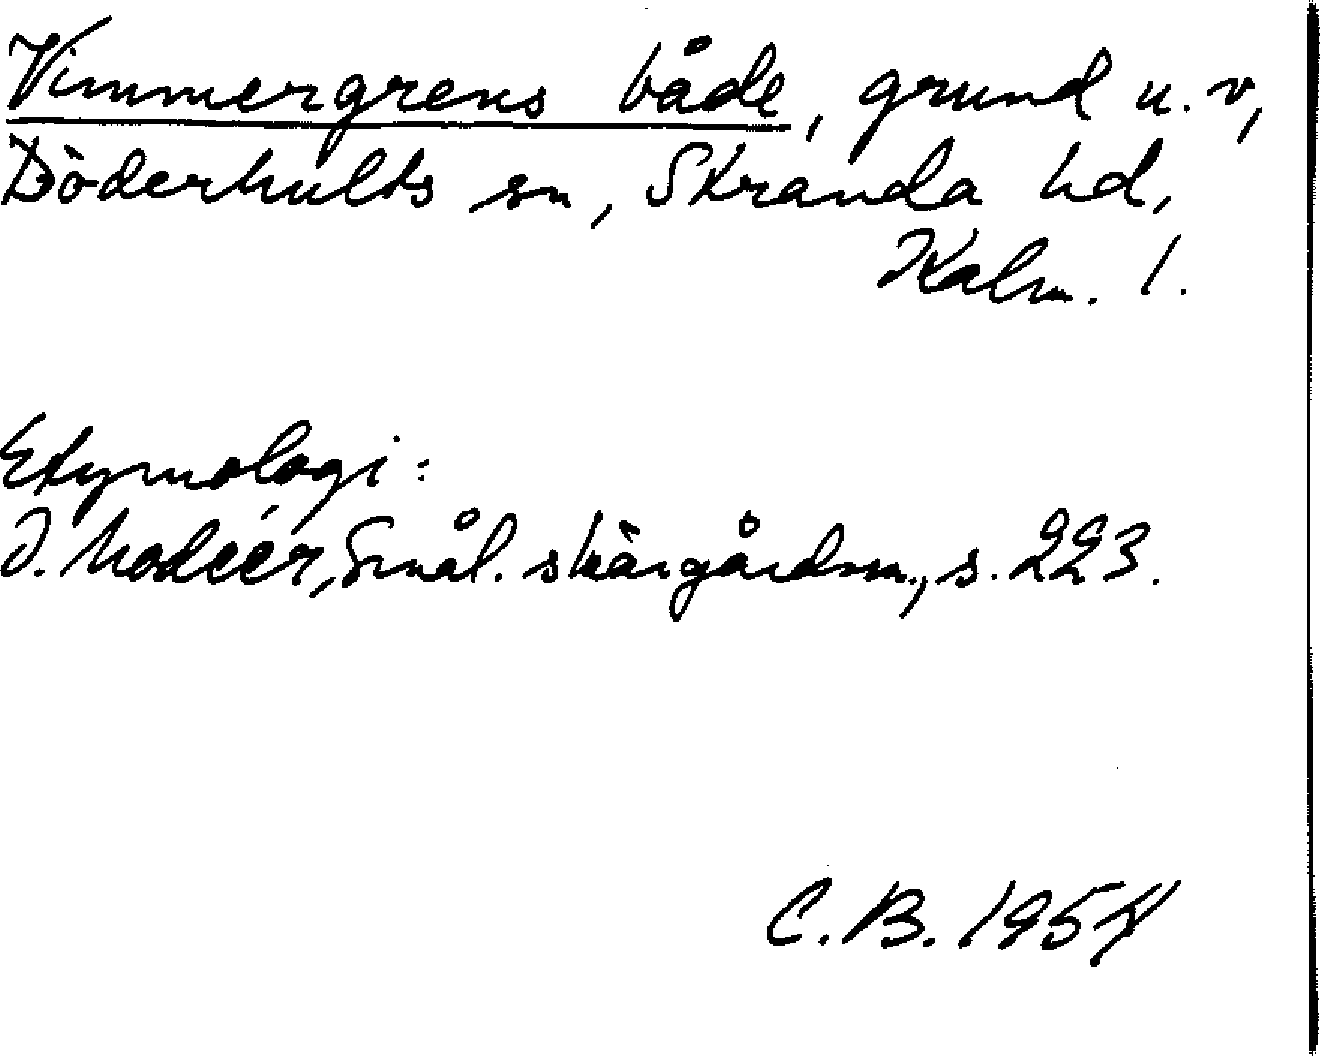 Vimmergrens både, grund u. v,
Döderhults sn, Stranda hd,
Kalm. l.
Etymologi:
I. Modéer, Smål. skärgårdsn., s. 223.
C. B. 1954